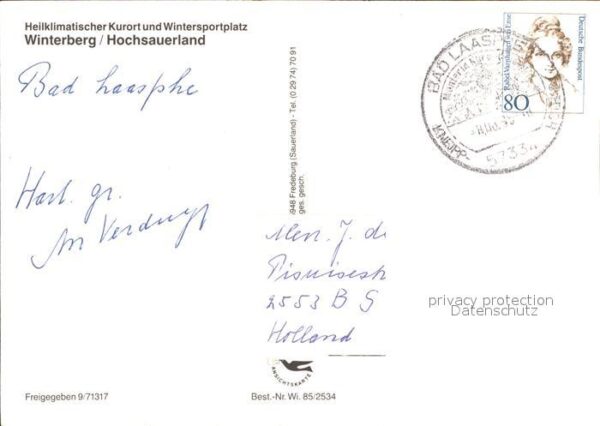 Heilklimatischer Kurort und Wintersportplatz
Winterberg / Hochsauerland
Bad Laasphe
Hart. gr.
5948 Fredeburg (Sauerland) - Tel. (0 29 74) 70 91
ges. gesch.
Deutsche Bundespost
80
BAD LAASPHE
KNEIPP-
57334
Men. J. de
2553 B G
Holland
privacy protection
Datenschutz
ANSICHTSKARTE
Freigegeben 9/71317
Best.-Nr. Wi. 85/2534